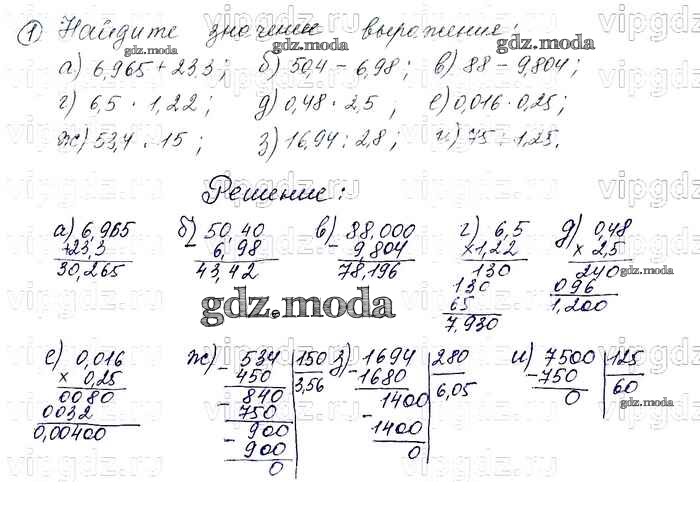 1 Найдите значение выражение:
а) 6,965 + 23,3; б) 50,4 - 6,98; в) 88 - 9,804;
г) 6,5 · 1,22; д) 0,48 · 2,5, е) 0,016 · 0,25;
ж) 53,4 : 15; з) 16,94 : 2,8; и) 75 : 1,25.
Решение:
а) 6,965 б) 50,40 в) 88,000 г) 6,5 д) 0,48
+23,3 - 6,98 - 9,804 ×1,22 × 2,5
30,265 43,42 78,196 130 240
130 096
65 1,200
7,930
е) 0,016 ж) 534 150 з) 1694 280 и) 7500 125
× 0,25 - 450 3,56 - 1680 6,05 - 750 60
0080 840 1400 0
0032 - 750 - 1400
0,00400 900 0
- 900
0
gdz.moda
vipgdz